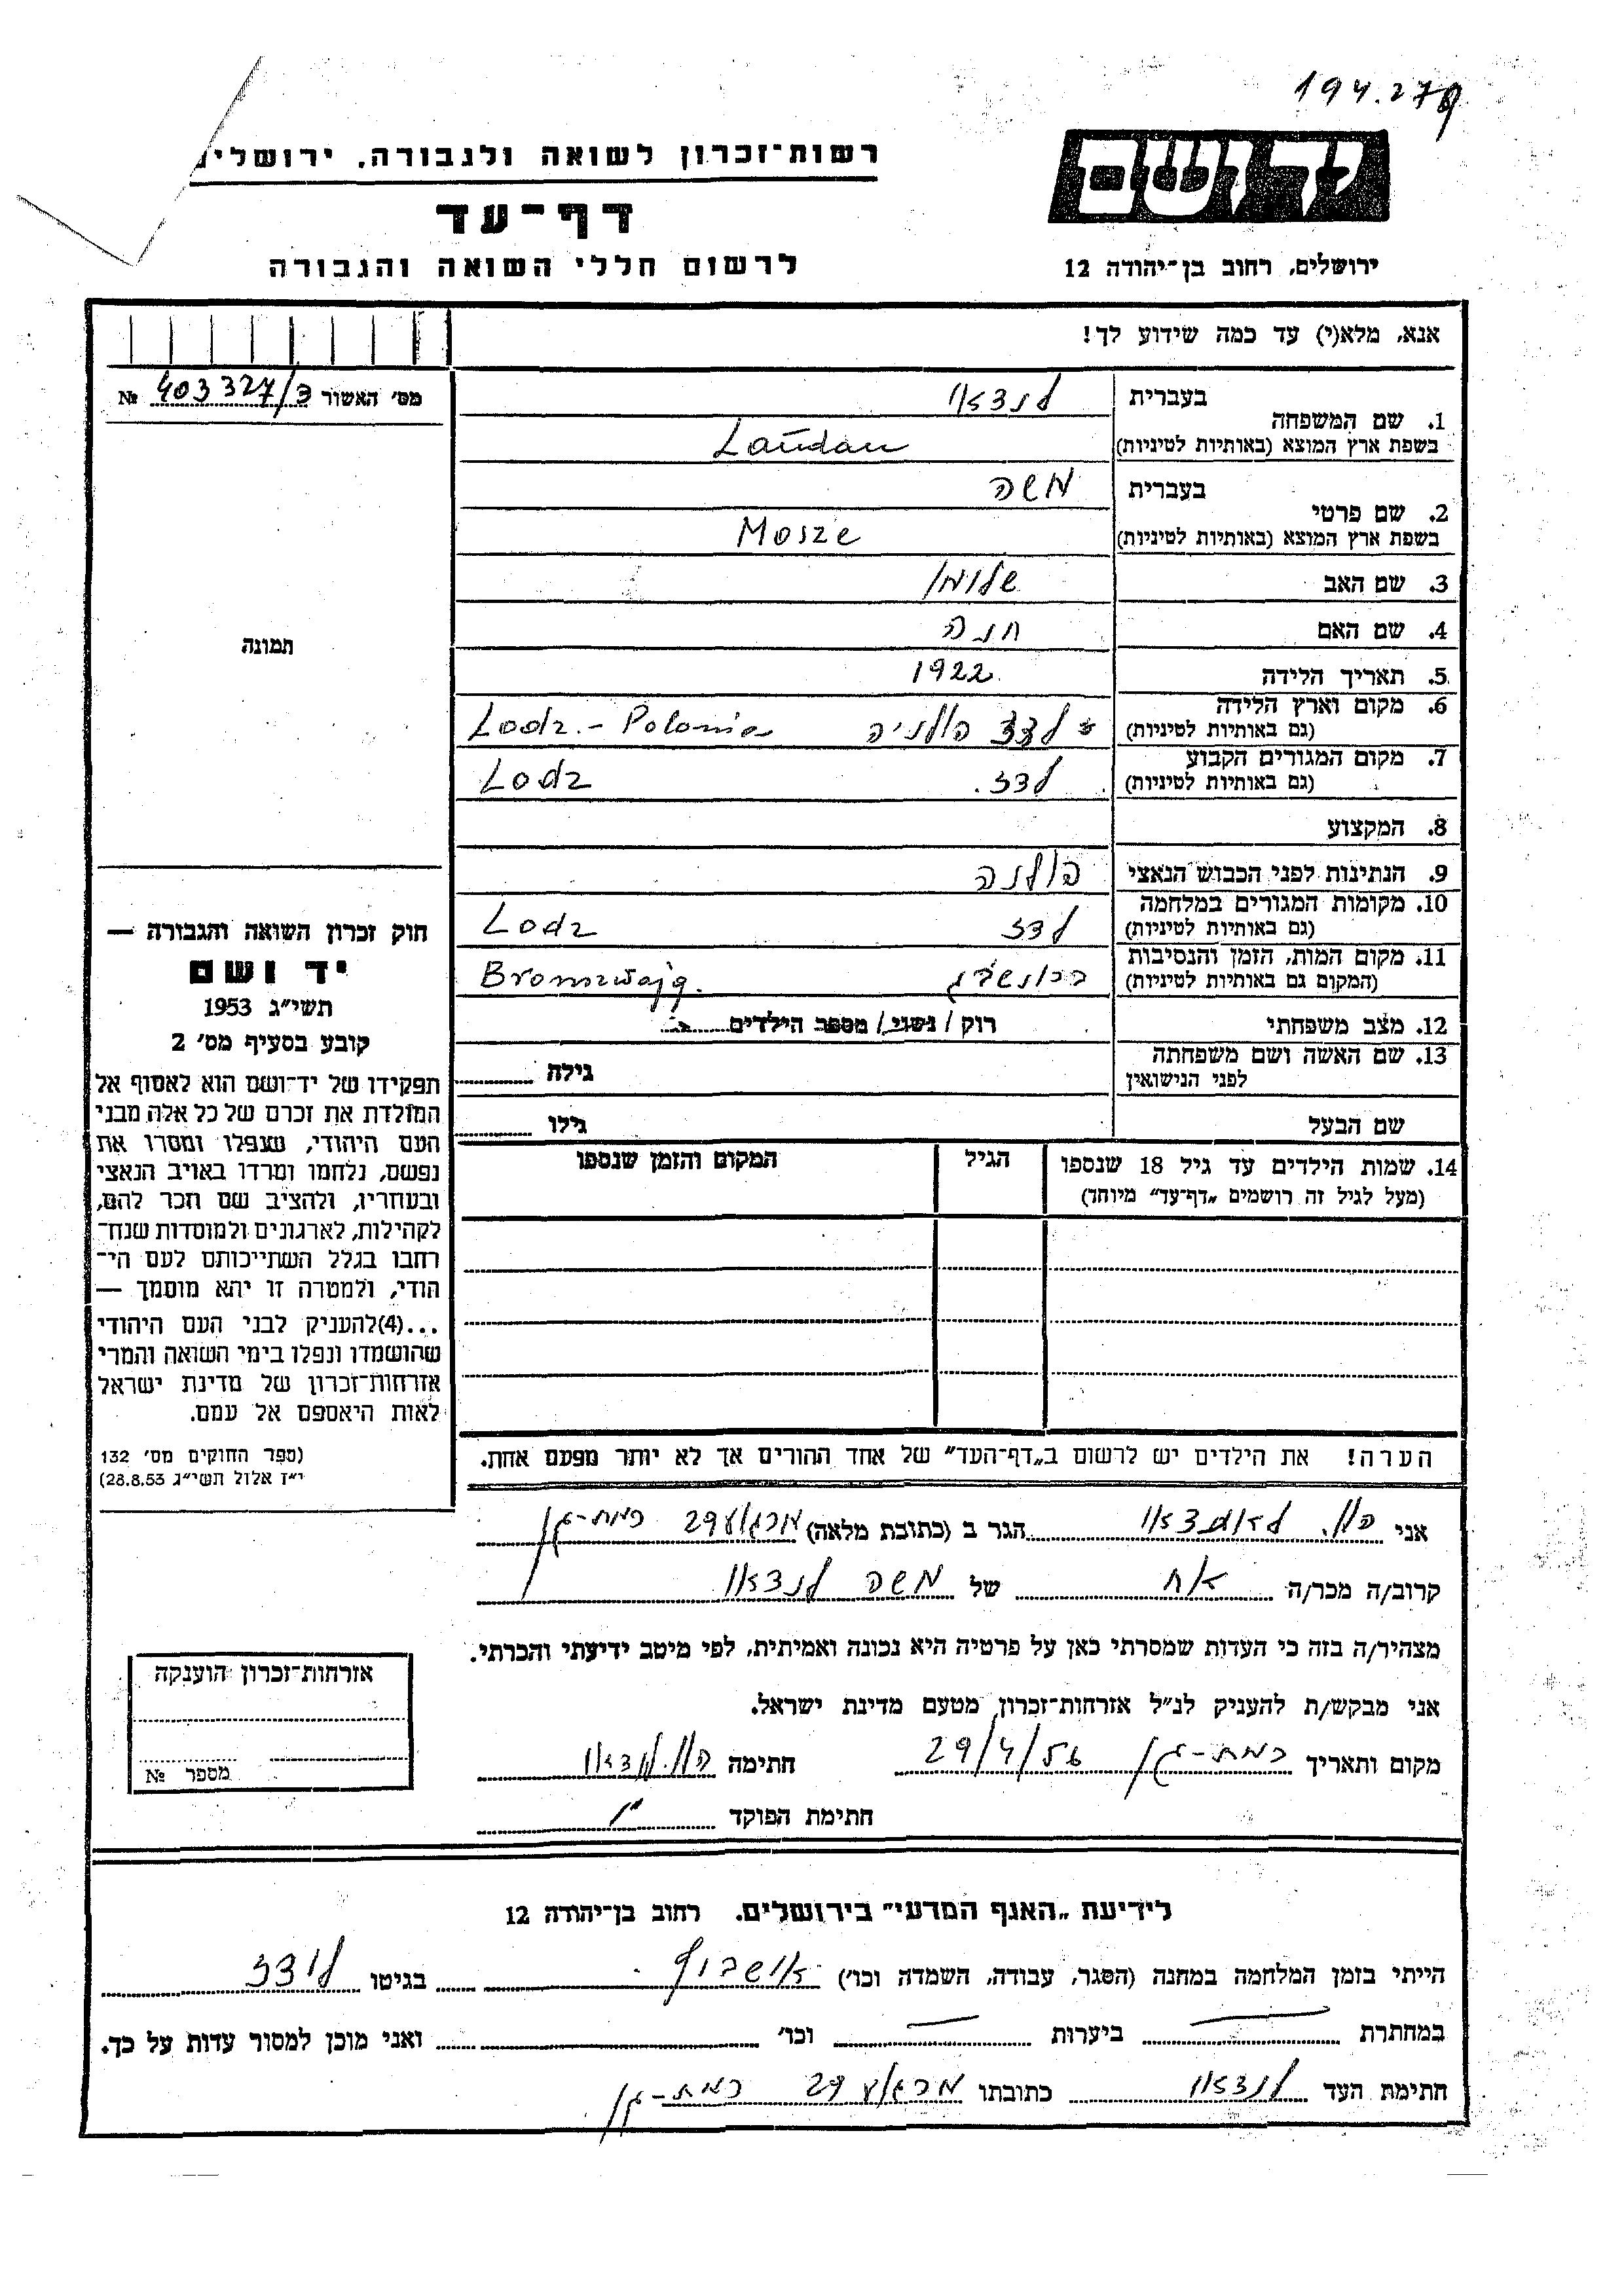 194.279
רשות-זכרון לשואה ולגבורה, ירושלים
יד ושם
דף-עד
לרשום חללי השואה והגבורה
ירושלים, רחוב בן-יהודה 12
אנא, מלא(י) עד כמה שידוע לך!
מס' האשור 403327/3 №
תמונה
1. שם המשפחה
בעברית לנדאו
בשפת ארץ המוצא (באותיות לטיניות) Laudau
2. שם פרטי
בעברית משה
בשפת ארץ המוצא (באותיות לטיניות) Mosze
3. שם האב שלומו
4. שם האם חנה
5. תאריך הלידה 1922
6. מקום וארץ הלידה
(גם באותיות לטיניות) לדז פולניה Lodz - Polonia
7. מקום המגורים הקבוע
(גם באותיות לטיניות) לדז. Lodz
8. המקצוע
9. הנתינות לפני הכבוש הנאצי פולנה
10. מקומות המגורים במלחמה
(גם באותיות לטיניות) לדז Lodz
11. מקום המות, הזמן והנסיבות
(המקום גם באותיות לטיניות) Bronszwajg.
12. מצב משפחתי רוק / נשוי / מספר הילדים
13. שם האשה ושם משפחתה
לפני הנישואין גילה
שם הבעל גילו
14. שמות הילדים עד גיל 18 שנספו הגיל המקום והזמן שנספו
(מעל לגיל זה רושמים „דף-עד" מיוחד)
הערה! את הילדים יש לרשום ב„דף-העד" של אחד ההורים אך לא יותר מפעם אחת.
חוק זכרון השואה והגבורה —
יד ושם
תשי"ג 1953
קובע בסעיף מס' 2
תפקידו של יד-ושם הוא לאסוף אל
המולדת את זכרם של כל אלה מבני
העם היהודי, שנפלו ומסרו את
נפשם, נלחמו ומרדו באויב הנאצי
ובעוזריו, ולהציב שם וזכר להם,
לקהילות, לארגונים ולמוסדות שנח-
רבו בגלל השתייכותם לעם הי-
הודי, ולמטרה זו יהא מוסמך —
...(4)להעניק לבני העם היהודי
שהושמדו ונפלו בימי השואה והמרי
אזרחות-זכרון של מדינת ישראל
לאות היאספם אל עמם.
(ספר החוקים מס' 132
י"ז אלול תשי"ג 28.8.53)
אני הגר ב (כתובת מלאה) 29 רמת-גן
קרוב/ה מכר/ה אח של משה לנדאו
מצהיר/ה בזה כי העדות שמסרתי כאן על פרטיה היא נכונה ואמיתית, לפי מיטב ידיעתי והכרתי.
אני מבקש/ת להעניק לנ"ל אזרחות-זכרון מטעם מדינת ישראל.
מקום ותאריך רמת-גן 29/4/56 חתימה
חתימת הפוקד
אזרחות-זכרון הוענקה
מספר №
לידיעת „האגף המדעי" בירושלים. רחוב בן-יהודה 12
הייתי בזמן המלחמה במחנה (הסגר, עבודה, השמדה וכו') בגיטו לודז
במחתרת — ביערות — וכו' ואני מוכן למסור עדות על כך.
חתימת העד לנדאו כתובתו 29 רמת-גן